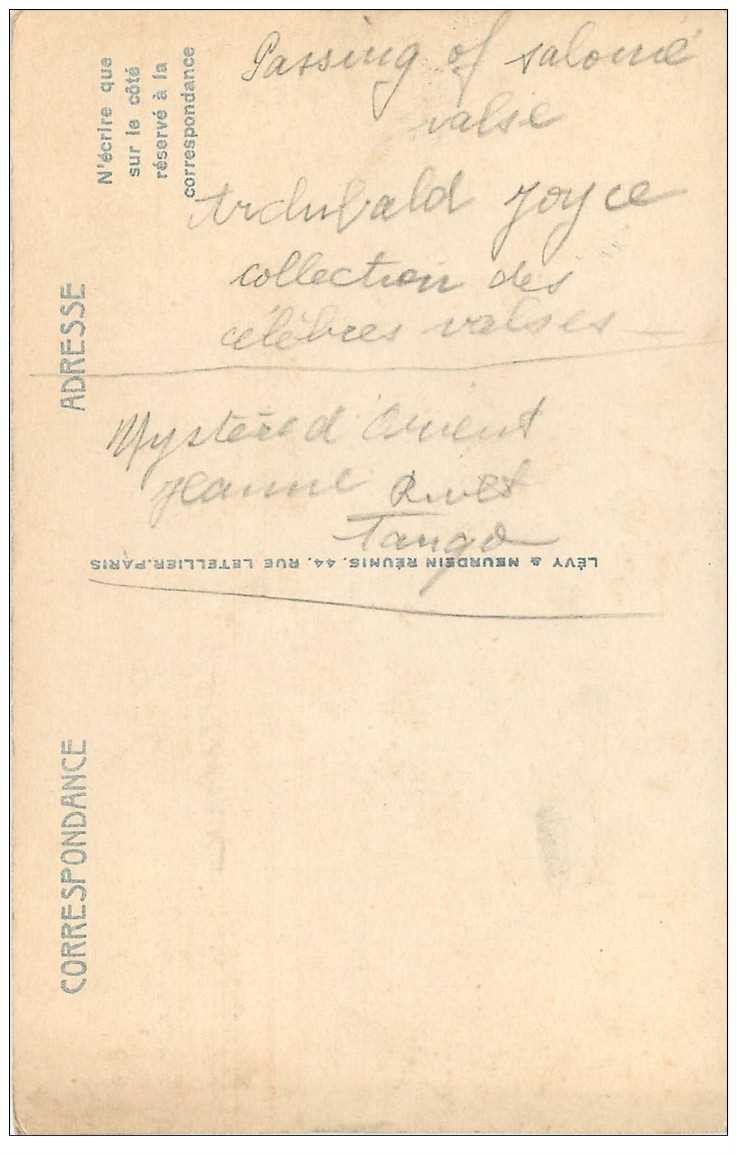 Passing of Salomé
valse
Archibald Joyce
collection des
célèbres valses
Mystère d'Orient
Jeanne Rivet
Tango
N'écrire que
sur le côté
réservé à la
correspondance
ADRESSE
LÉVY & NEURDEIN RÉUNIS, 44, RUE LETELLIER, PARIS
CORRESPONDANCE